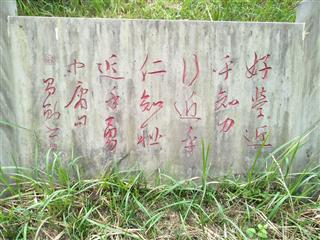 好學近
乎知力
行近乎
仁知耻
近乎勇
中庸句